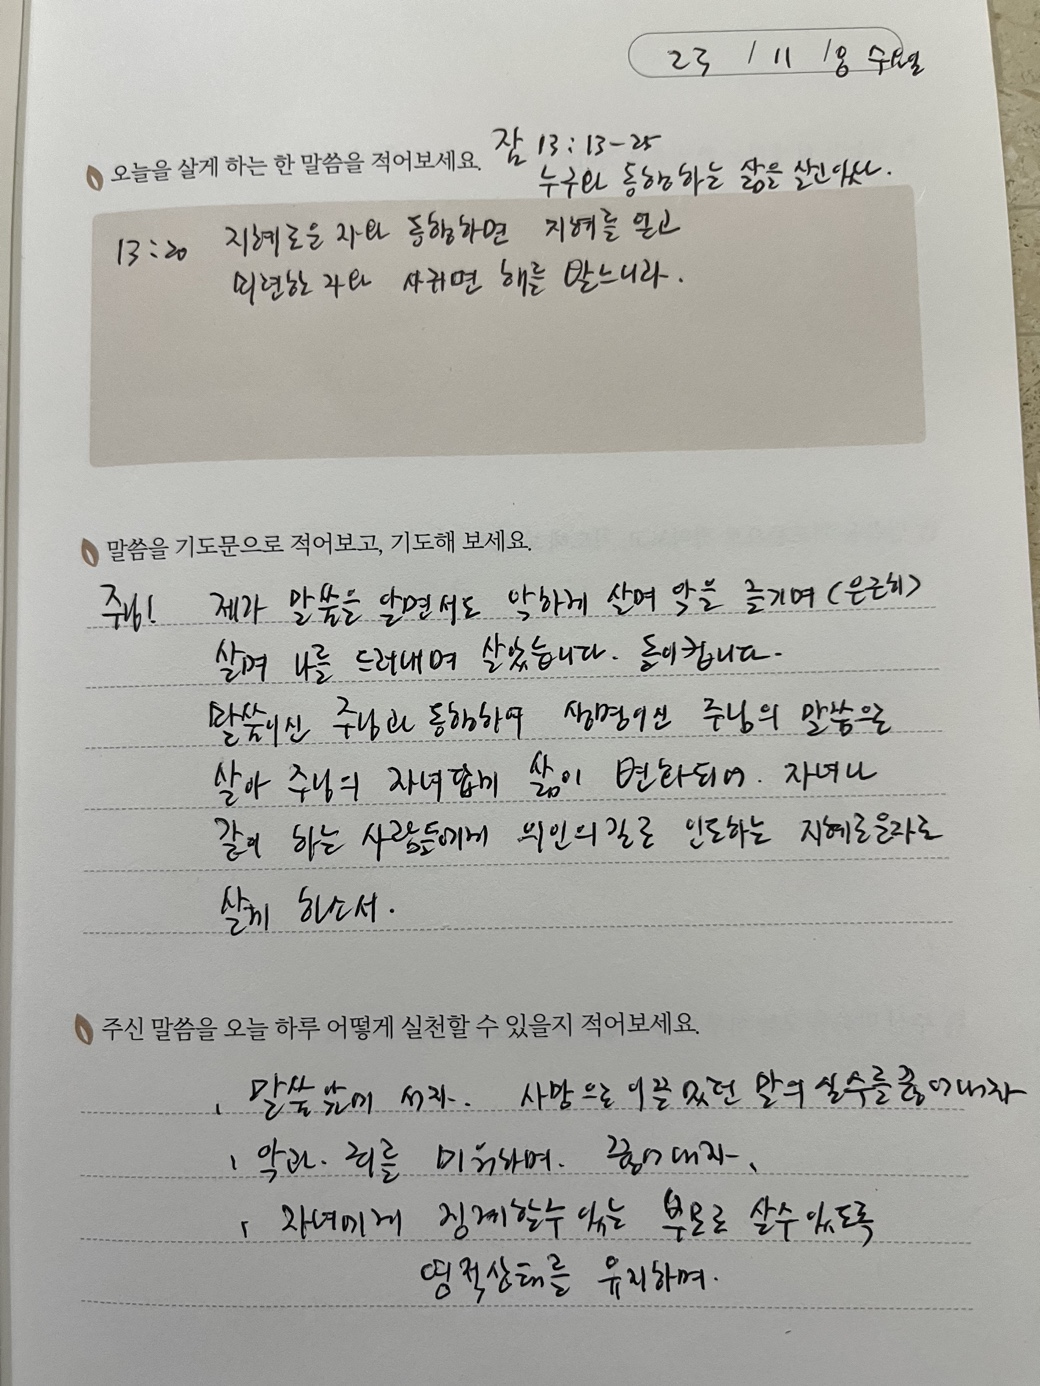 23 / 11 / 8 수요일
오늘을 살게 하는 한 말씀을 적어보세요.
잠 13:13-25
누구와 동행하는 삶을 살고있나.
13:20 지혜로운 자와 동행하면 지혜를 얻고
미련한 자와 사귀면 해를 받느니라.
말씀을 기도문으로 적어보고, 기도해 보세요.
주님! 제가 말씀을 알면서도 악하게 살며 악을 즐기며 (은근히)
살며 나를 드러내며 살았습니다. 돌이킵니다.
말씀이신 주님과 동행하여 생명이신 주님의 말씀으로
살아 주님의 자녀답게 삶이 변화되어. 자녀나
같이 하는 사람들에게 의인의 길로 인도하는 지혜로운자로
살게 하소서.
주신 말씀을 오늘 하루 어떻게 실천할 수 있을지 적어보세요.
말씀앞에 서자. 사망으로 이끌었던 말의 실수를 끊어내자
악과. 죄를 미워하며. 끊어내자.
자녀에게 징계할수 있는 부모로 살수있도록
영적상태를 유지하며.